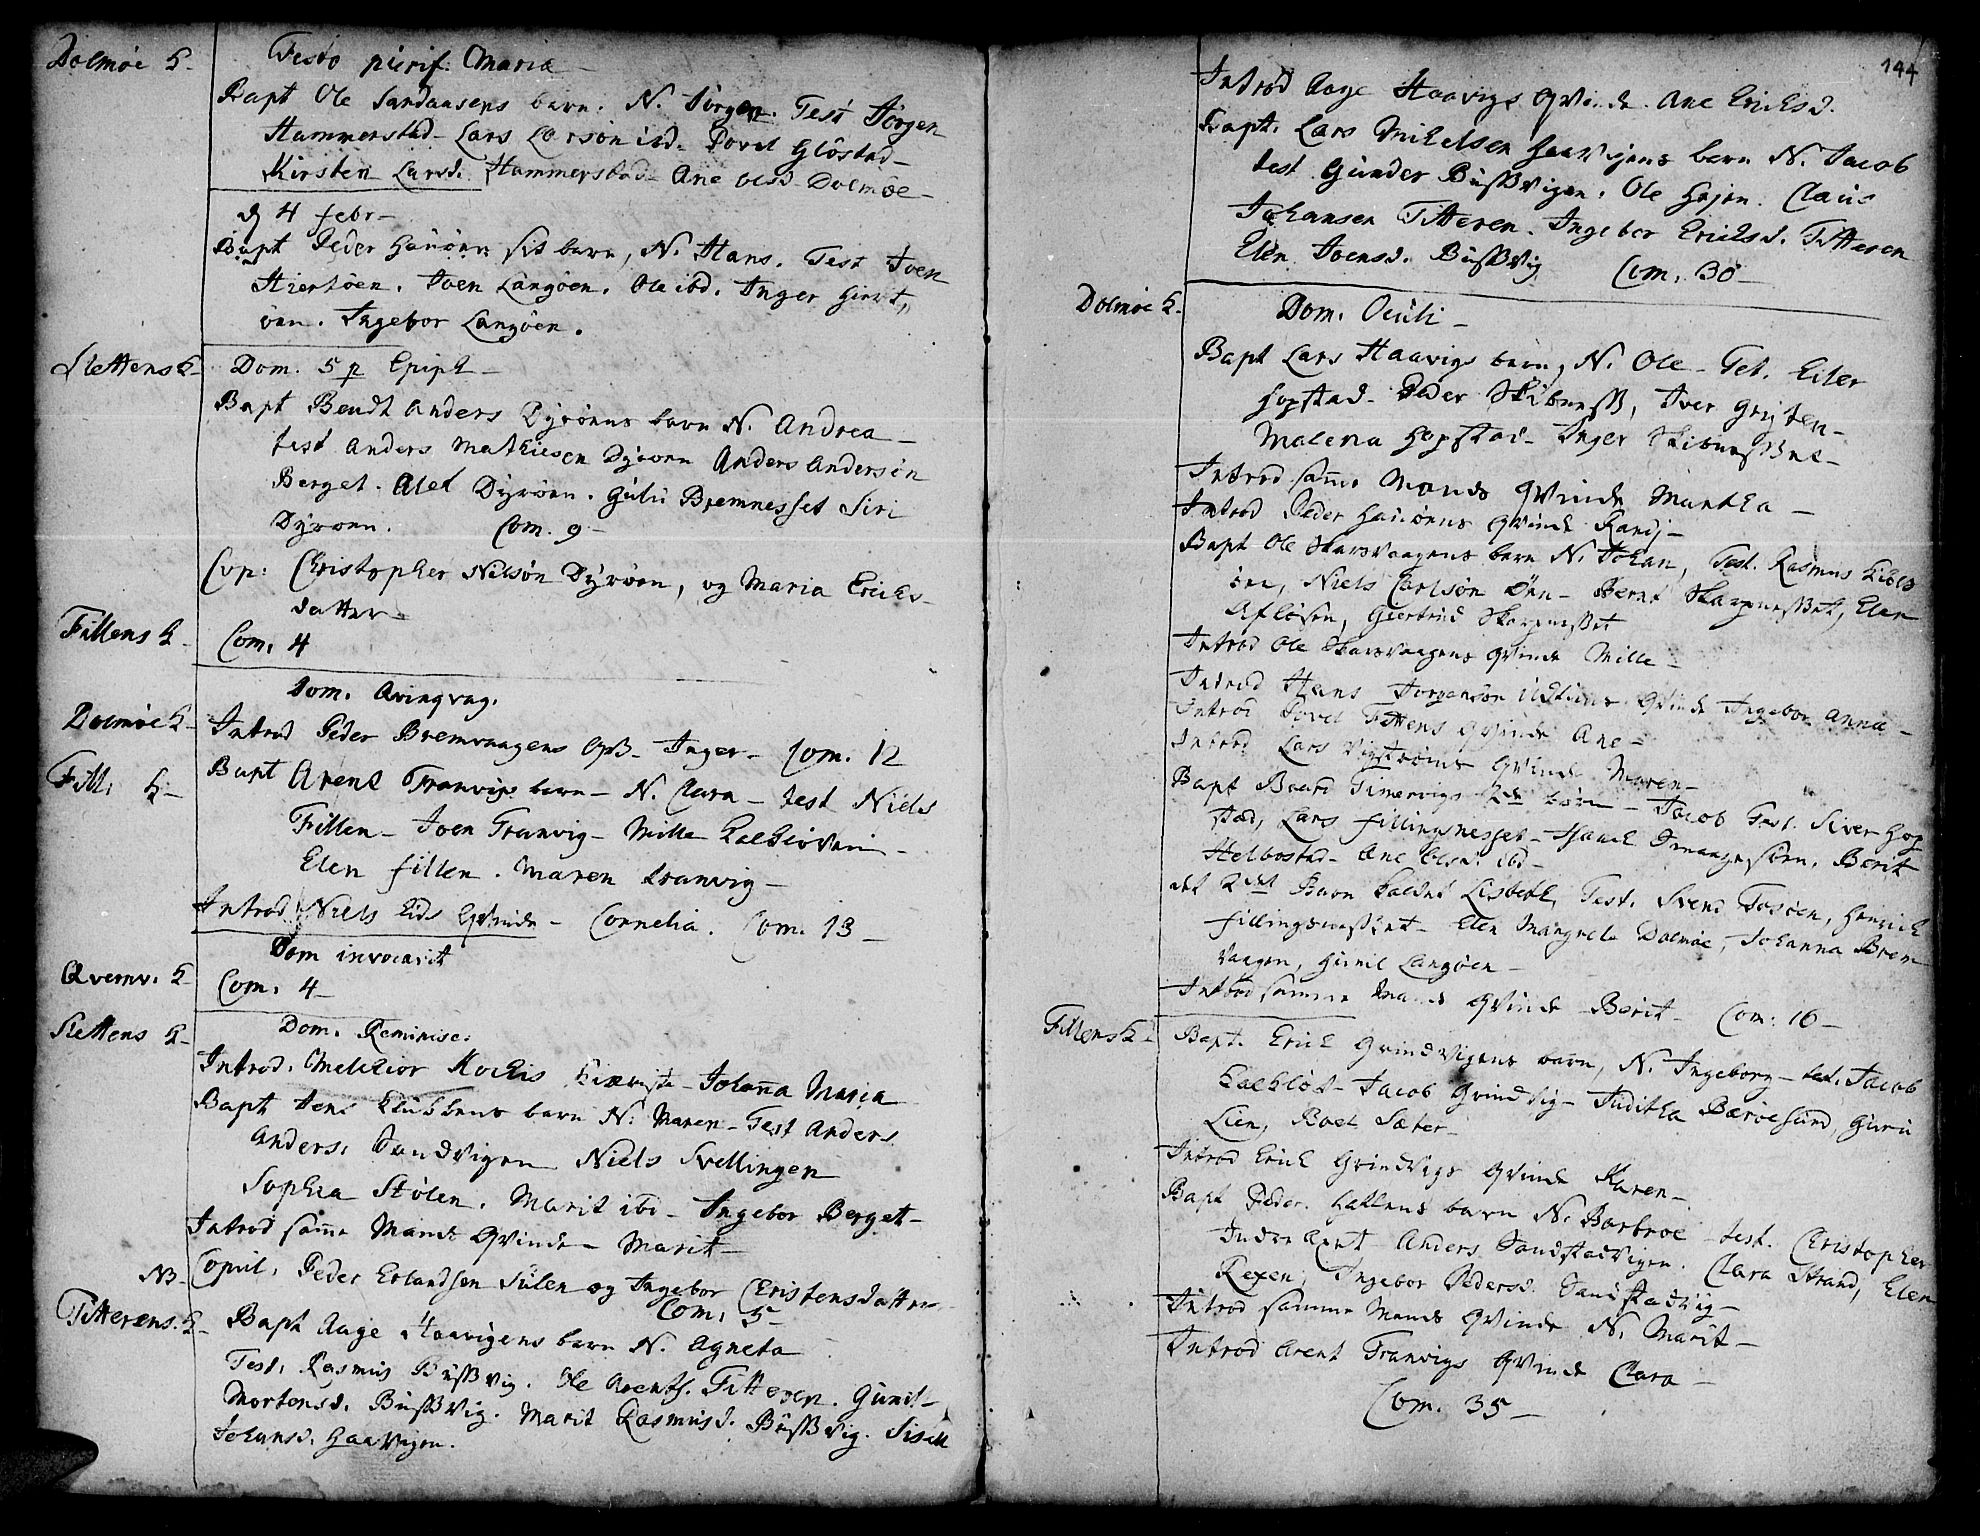 Dolmøe K. Festo purif: Maria
Bapt Ole Sandaasens barn. N. Jørgen. Test Jørgen
Hammerstad. Lars Larsøn ibd. Povel Gløstad
Kirsten Larsd. Hammerstad. Ane Olsd Dolmøe
d 4 febr
Bapt Peder Hanøens sit barn, N. Hans. Test Joen
Hiertøen. Joen Langøen. Ole ibd. Inger Hiert,
øen. Ingebor Langøen.
Slettens K Dom. 5 p Epiph
Bapt Bendt Anders Dyrøens barn N. Andrea
test Anders Mathiesen Dyrøen Anders Andersøn
Berget. Alet Dyrøen. Guru Bremnesset Siri
Dyrøen. Com. 9
Cop: Christopher Nilsøn Dyrøen, og Maria Erichs
datter
Fillens K Com. 4
Dom. Qvinqvag.
Dolmøe K Introd Peder Bremvaagens Inger Com. 12
Fill. K Bapt Arent Tranvigs barn N. Clara test Niels
Fillen Joen Tranvig Mille
Elen Fillen. Maren Tranvig
Introd Niels Eids Qvinde Cornelia. Com. 13
Dom invocavit
Qvernv. K Com. 4
Slettens K Dom. Reminisc.
Introd. Melchior Kochis Johanna Maria
Bapt Jens barn N. Maren Test Anders
Anders. Sandvigen Niels Svellingen
Sophia Stølen. Marit ibd Ingebor Berget
Introd samme Mands Qvinde Marit
NB Copul. Peder Erlandsen Sulen og Ingebor Christensdatter
Com. 5
Titterens. K Bapt Aage Haavigens barn N. Agneta
Test. Rasmus Bussvig. Ole Arents. Titteren. Gunil
Mortensd. Bussvig. Marit Rasmusd. Bussvig. Sisell
Johansd. Haavigen.
144
Introd Aage Haavigs Qvinde Ane Ericksd.
Bapt. Lars Mickelsen Haavigens barn N. Jacob
test Gunder Bussvigen. Ole Claus
Johansen Titteren. Ingebor Ericksd. Titteren
Elen Joensd. Bussvig Com. 30
Dolmøe K. Dom. Oculi
Bapt Lars Haavigs barn, N. Ole Tet. Eiler
Hopstad Peder Skibness, Iver Gryten
Malena Hopstad Inger Skibnesset
Introd samme Mands Qvinde Martha
Introd Peder Hanøens Qvinde Randj
Bapt Ole Skarsvaagens barn N. Johan, Test. Rasmus
øen, Niels Carlsøn Øen Bernt Skarpnesset, Elen
Afløsen, Giertrud Skarpnesset
Introd Ole Skarsvaagens Qvinde Mille
Introd Hans Jørgensøn Qvinde Ingebor Anna
Introd Povel Tittens Qvinde Ane
Introd Lars Vigstrøms Qvinde Maren
Bapt Baard Timervigs 2de børn Jacob Test. Siver Hop
stad, Lars Fillingsnesset Berit
Helbostad Ane Olsd. ibd
det 2det Barn kaldet Lisbeth, Test. Svend Tosøen, Henrich
Fillingsnesset Elen Margrete Dolmøe, Johanna Brem
vaagen, Gunil Langøen
Introd samme Mands Qvinde Berit Com: 16
Fillens K Bapt. Erich Grindvigens barn, N. Ingeborg test. Jacob
Kalkløt Jacob Grindvig Juditha Barøesund, Guru
Lien, Roel Sæter
Introd Erich Grindvigs Qvinde Karen
Bapt Peder. barn N. Barbroe test. Christopher
Anders Sandstadvigen. Clara Strand, Elen
Rexen, Ingebor Pedersd. Sandstadvig
Introd samme Mands Qvinde N. Marit
Introd Arent Tranvigs Qvinde Clara
Com. 35